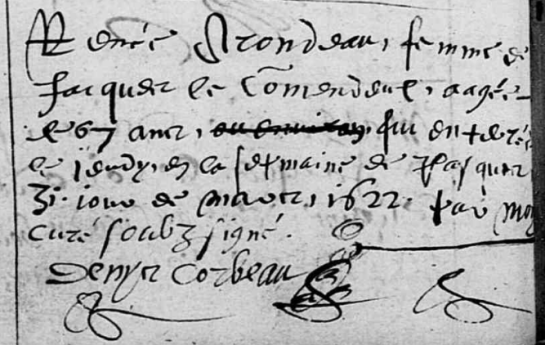 Renée Grondeau, femme de
Jacques le Comendeul, aagée
de 67 ans, ou environ, fut enterée
le jeudy, en la sepmaine de Pasques
31. jour de mars, 1622. par moy
curé soubz signé.
Denys Corbeau